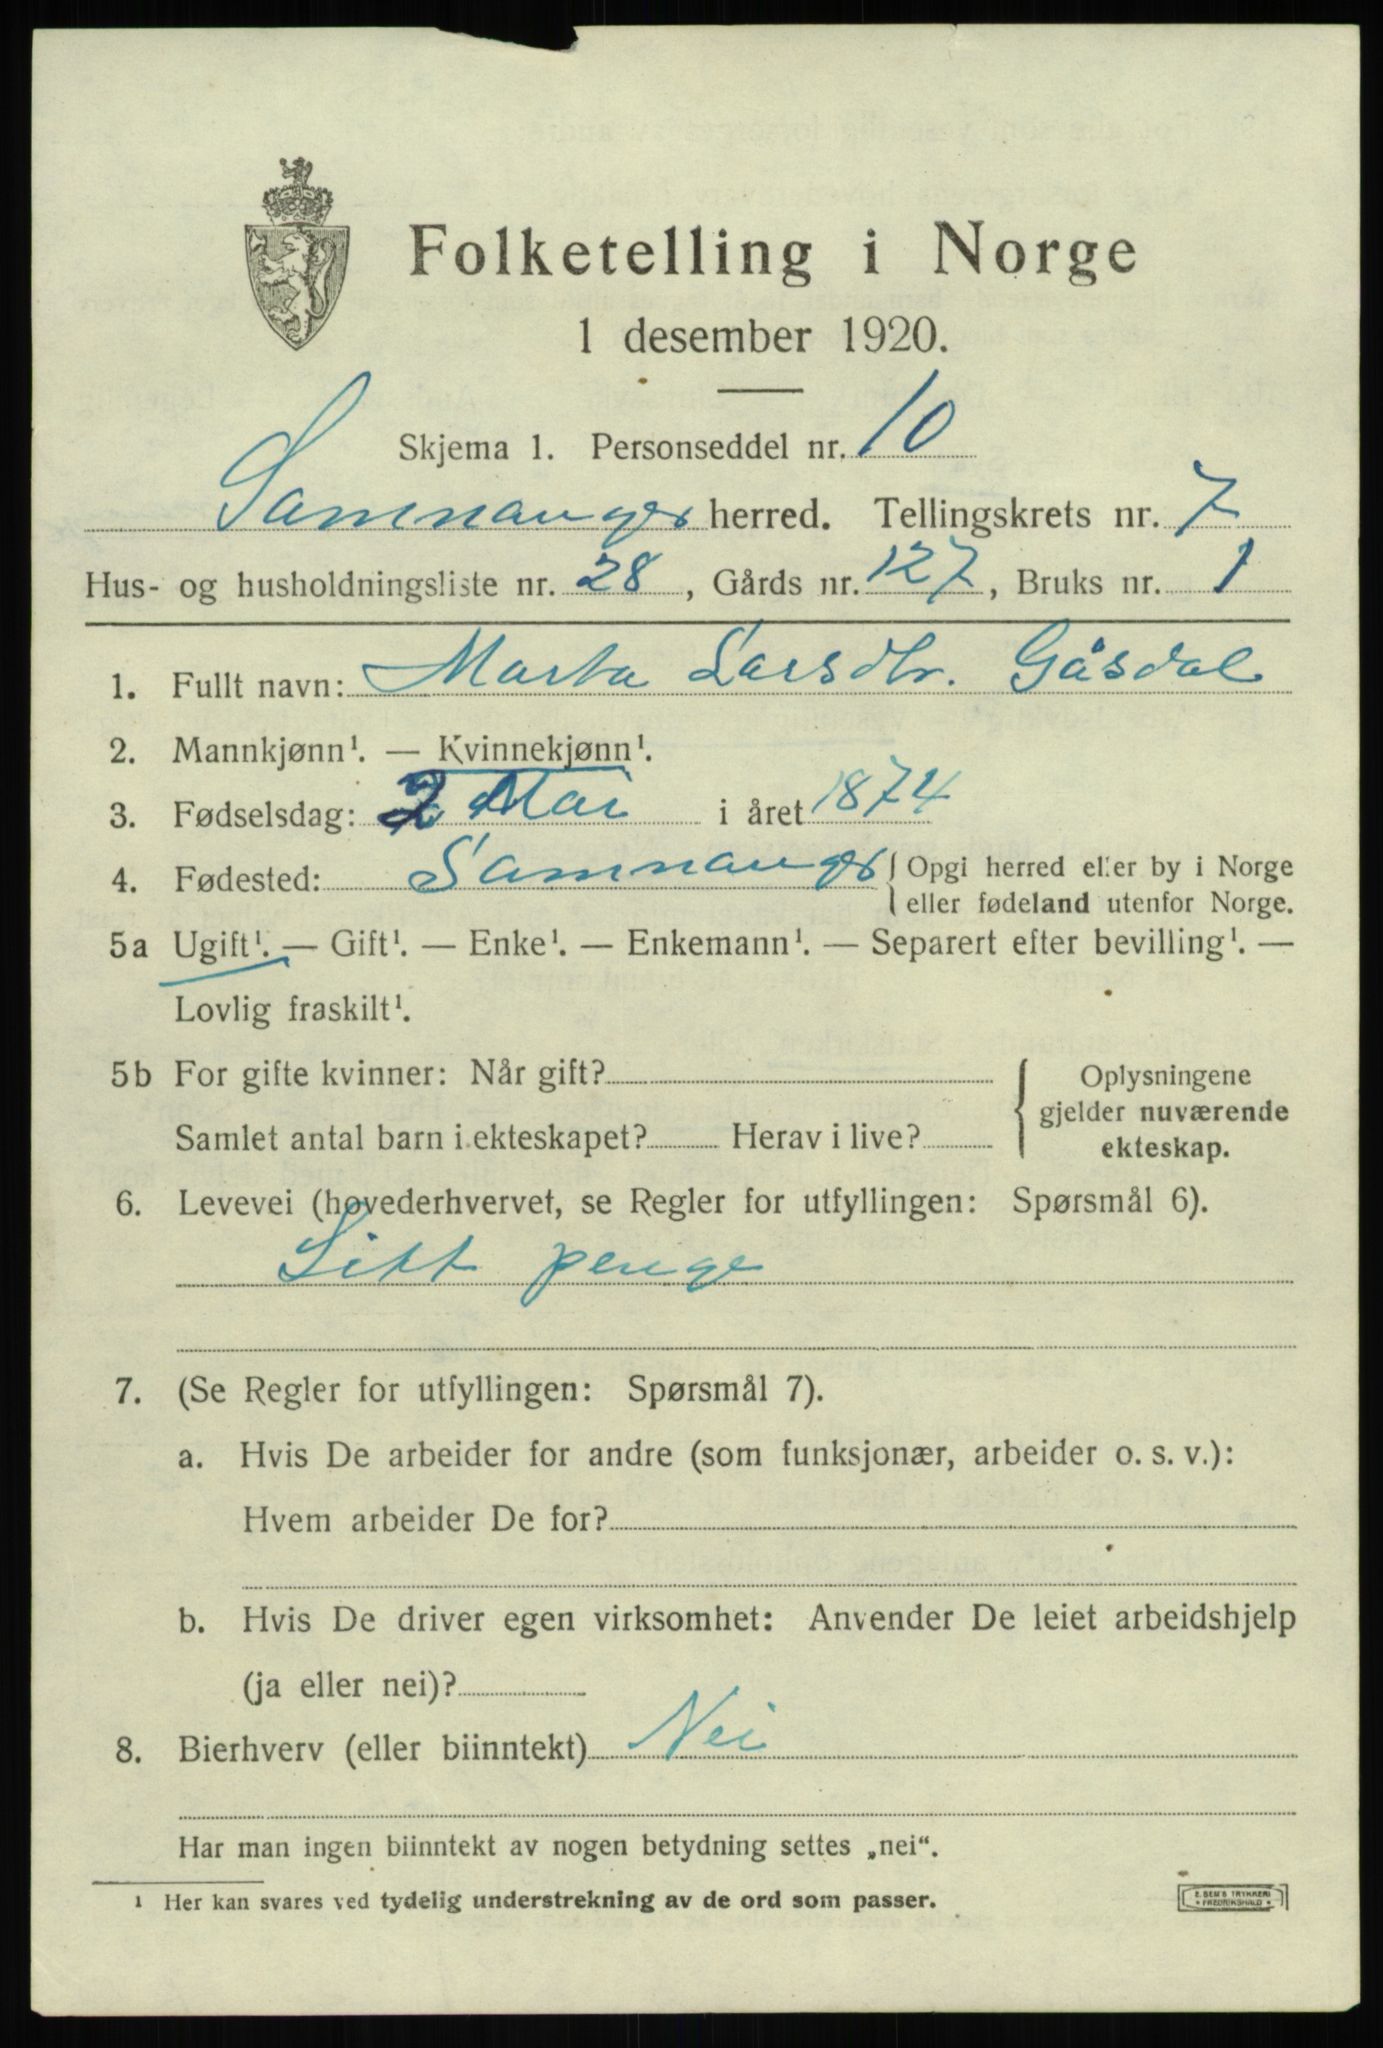 Folketelling i Norge
1 desember 1920.
Skjema 1. Personseddel nr. 10
Samnanger herred. Tellingskrets nr. 7
Hus- og husholdningsliste nr. 28, Gårds nr. 127, Bruks nr. 1
1. Fullt navn: Marta Larsdtr. Gåsdal
2. Mannkjønn¹. — Kvinnekjønn¹.
3. Fødselsdag: 2 Mai i året 1874
4. Fødested: Samnanger { Opgi herred eller by i Norge
eller fødeland utenfor Norge.
5a Ugift¹. — Gift¹. — Enke¹. — Enkemann¹. — Separert efter bevilling¹. —
Lovlig fraskilt¹.
5b For gifte kvinner: Når gift?
Samlet antal barn i ekteskapet? Herav i live?
{ Oplysningene
gjelder nuværende
ekteskap.
6. Levevei (hovederhvervet, se Regler for utfyllingen: Spørsmål 6).
Litt penge
7. (Se Regler for utfyllingen: Spørsmål 7).
a. Hvis De arbeider for andre (som funksjonær, arbeider o. s. v.):
Hvem arbeider De for?
b. Hvis De driver egen virksomhet: Anvender De leiet arbeidshjelp
(ja eller nei)?
8. Bierhverv (eller biinntekt) Nei
Har man ingen biinntekt av nogen betydning settes „nei“.
¹ Her kan svares ved tydelig understrekning av de ord som passer.
E. SEM'S TRYKKERI
• FREDRIKSHALD •